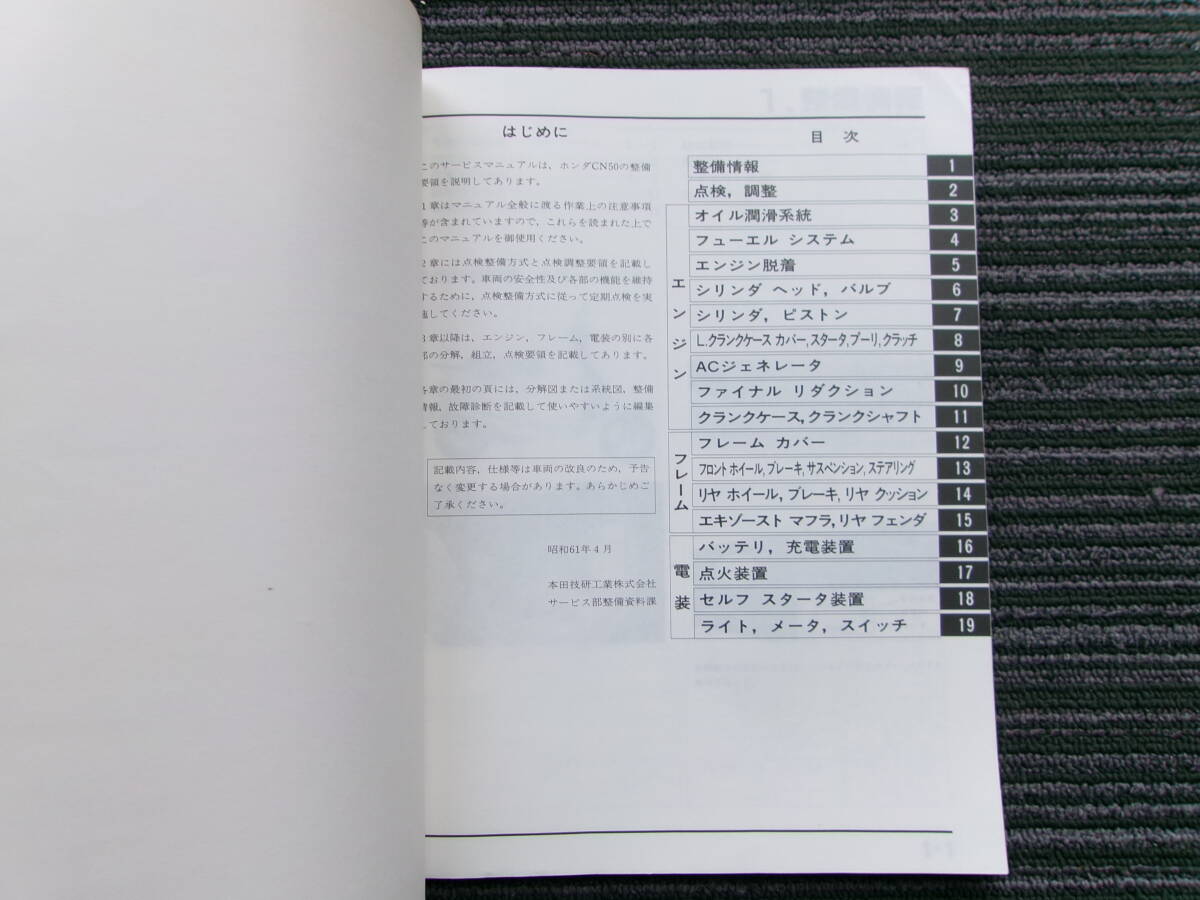 はじめに
このサービスマニュアルは、ホンダCN50の整備
要領を説明してあります。
1章はマニュアル全般に渡る作業上の注意事項
等が含まれていますので、これらを読まれた上で
このマニュアルを御使用ください。
2章には点検整備方式と点検調整要領を記載し
ております。車両の安全性及び各部の機能を維持
するために、点検整備方式に従って定期点検を実
施してください。
3章以降は、エンジン、フレーム、電装の別に各
部の分解、組立、点検要領を記載してあります。
各章の最初の頁には、分解図または系統図、整備
情報、故障診断を記載して使いやすいように編集
しております。
記載内容、仕様等は車両の改良のため、予告
なく変更する場合があります。あらかじめご
了承ください。
昭和61年4月
本田技研工業株式会社
サービス部整備資料課
目 次
整備情報 1
点検, 調整 2
エンジン
オイル潤滑系統 3
フューエル システム 4
エンジン脱着 5
シリンダ ヘッド, バルブ 6
シリンダ, ピストン 7
L.クランクケース カバー,スタータ,プーリ,クラッチ 8
ACジェネレータ 9
ファイナル リダクション 10
クランクケース,クランクシャフト 11
フレーム
フレーム カバー 12
フロント ホイール,ブレーキ,サスペンション,ステアリング 13
リヤ ホイール,ブレーキ,リヤ クッション 14
エキゾースト マフラ,リヤ フェンダ 15
電装
バッテリ, 充電装置 16
点火装置 17
セルフ スタータ装置 18
ライト, メータ, スイッチ 19